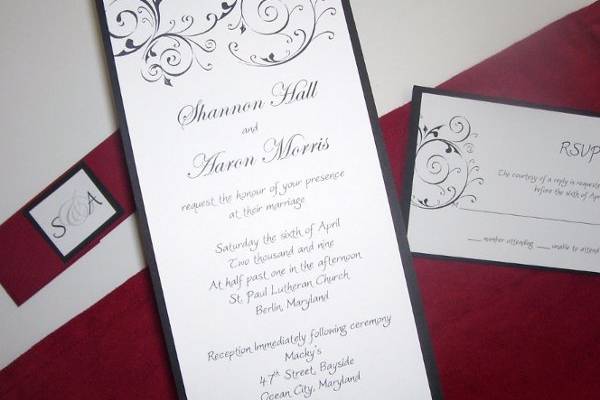 Shannon Hall
and
Aaron Morris
request the honour of your presence
at their marriage
Saturday the sixth of April
Two thousand and nine
At half past one in the afternoon
St. Paul Lutheran Church
Berlin, Maryland
Reception Immediately following ceremony
Macky's
47th Street, Bayside
Ocean City, Maryland
S & A
RSVP
The courtesy of a reply is requested
before the sixth of April
number attending unable to attend